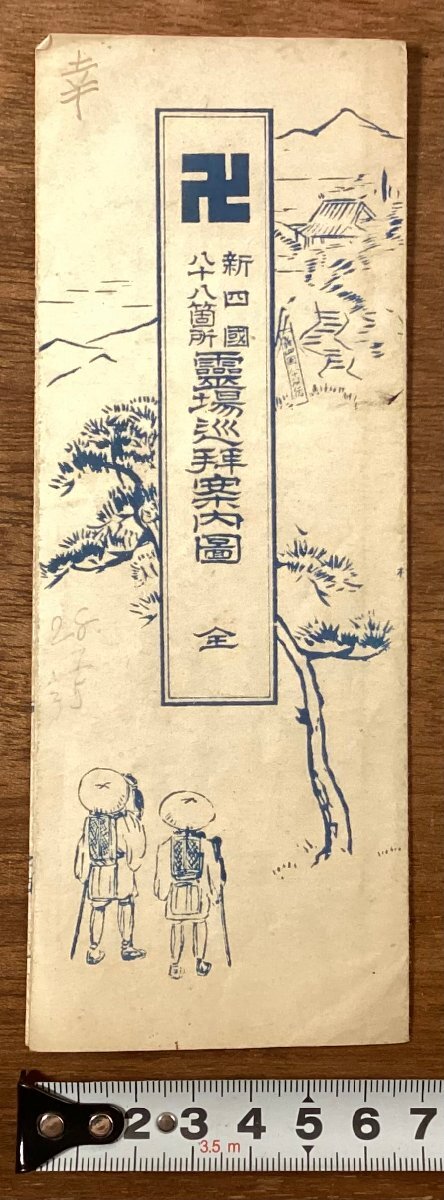 幸
卍
新四國
八十八箇所
靈場巡拜案内圖
全
28
2 3 4 5 6 7
3.5 m